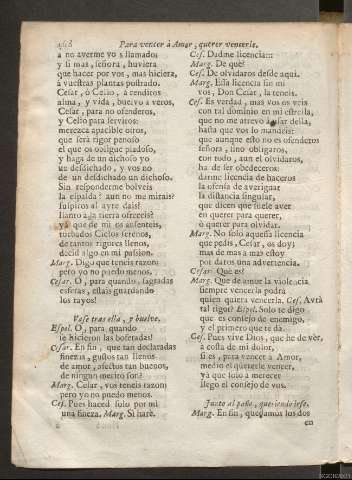 Para vencer à Amor, querer vencerle.
a no averme vos llamado;
y si mas, señora, huviera
que hacer por vos, mas hiciera,
à vuestras plantas postrado.
Cesar, ò Celio, à rendiros
alma, y vida, buelvo à veros,
Cesar, para no ofenderos,
y Celio para serviros;
merezca apacible oiros,
que serà rigor penoso
el que os obligue piadoso,
y haga de un dichoso yo
un desdichado, y vos no
de un desdichado un dichoso.
Sin responderme bolveis
la espalda? aun no me mirais?
suspiros al ayre dais?
llanto à la tierra ofreceis?
yà que de mi os ausenteis,
turbados Cielos serenos,
de tantos rigores llenos,
decid algo en mi passion.
Marg. Digo que teneis razon;
pero yo no puedo menos.
Cesar. O, para quando, sagradas
esferas, estais guardando
los rayos!
Vase tras ella, y buelve.
Espol. O, para quando
se hicieron las bofetadas!
Cesar. En fin, que tan declaradas
finezas, gustos tan llenos
de amor, afectos tan buenos,
de ningun merito son?
Marg. Cesar, vos teneis razon;
pero yo no puedo menos.
Ces. Pues haced solo por mi
una fineza. Marg. Sì harè.
Ces. Dadme licencia::
Marg. De què?
Ces. De olvidaros desde aqui.
Marg. Essa licencia sin mi
vos, Don Cesar, la teneis.
Ces. Es verdad, mas vos os veis
con tal dominio en mi estrella,
que no me atrevo à usar della,
hasta que vos lo mandeis:
que aunque esto no es ofenderos
señora, sino obligaros,
con todo, aun el olvidaros,
ha de ser obedeceros:
darme licencia de haceros
la ofensa de averiguar
la distancia singular,
que dicen que suele aver
en querer para querer,
ò querer para olvidar.
Marg. No solo aquessa licencia
que pedis, Cesar, os doy;
mas de mas à mas estoy
por daros una advertencia.
Cesar. Què es?
Marg. Que de amor la violencia
siempre vencerla podrà
quien quiera vencerla. Ces. Avrà
tal rigor? Espol. Solo te digo
que es consejo de enemigo,
y el primero que te dà.
Ces. Pues vive Dios, que he de ver,
à costa de mi dolor,
si es, para vencer à Amor,
medio el quererle vencer,
yà que solo à merecer
llego el consejo de vos.
Junto al paño, queriendo irse.
Marg. En fin, quedamos los dos
en